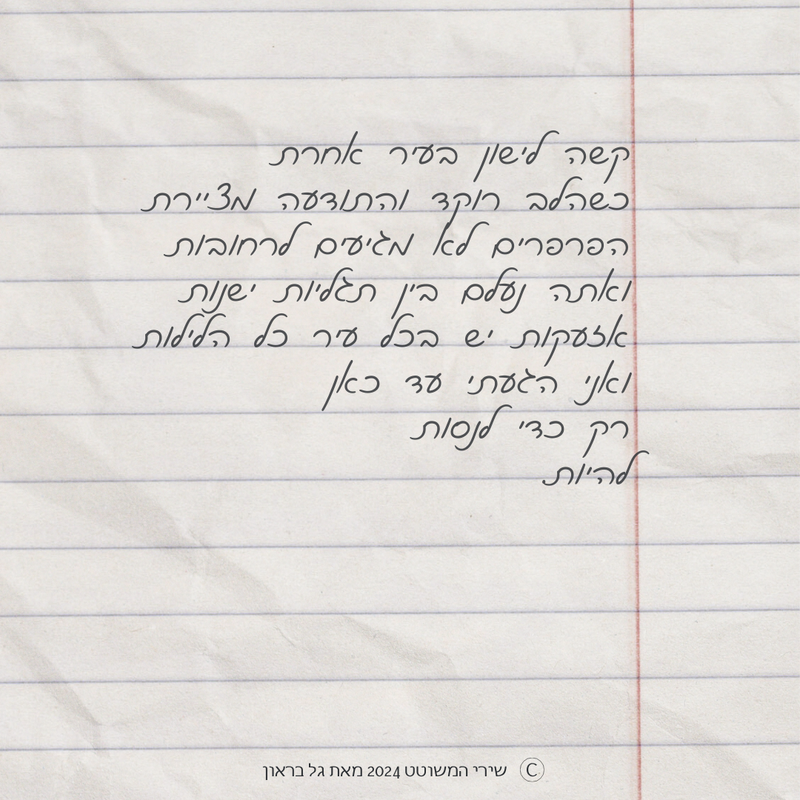 קשה לישון בעיר אחרת
כשהלב רוקד והתודעה מציירת
הפרפרים לא מגיעים לרחובות
ואתה נעלם בין תגליות ישנות
אזעקות יש בכל עיר כל הלילות
ואני הגעתי עד כאן
רק כדי לנסות
להיות.
© שירי המשוטט 2024 מאת גל בראון